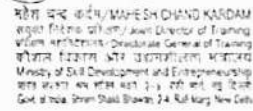 महेश चन्द कर्दम/MAHESH CHAND KARDAM
संयुक्त निदेशक प्रशिक्षण/Joint Director of Training
Directorate General of Training
कौशल विकास और उद्यमशीलता मंत्रालय
Ministry of Skill Development and Entrepreneurship
भारत सरकार श्रम शक्ति भवन 2-4 रफी मार्ग नई दिल्ली
Govt of India Shram Shakti Bhawan 2-4 Rafi Marg New Delhi